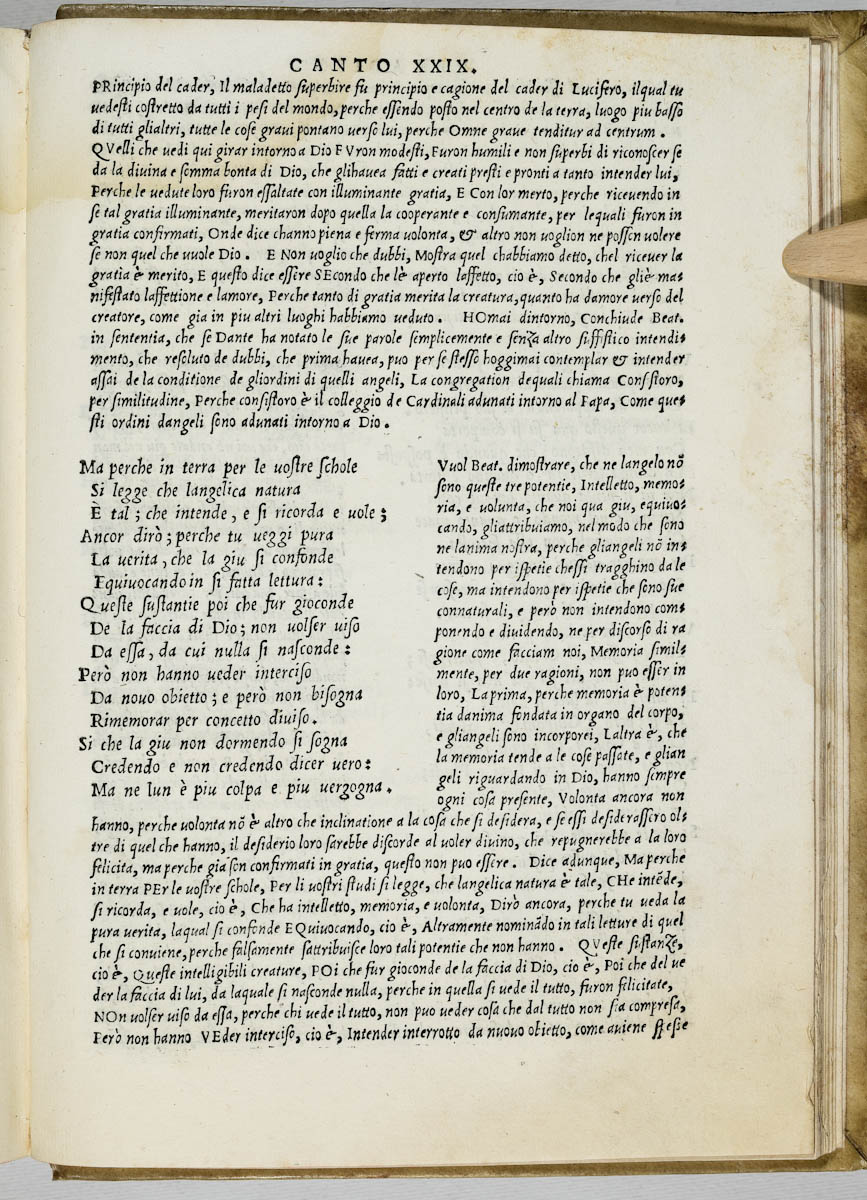 CANTO XXIX.
PRincipio del cader, Il maladetto superbire fu principio e cagione del cader di Lucifero, ilqual tu
uedesti costretto da tutti i pesi del mondo, perche essendo posto nel centro de la terra, luogo piu basso
di tutti glialtri, tutte le cose graui pontano uerso lui, perche Omne graue tenditur ad centrum.
QVelli che uedi qui girar intorno a Dio FVron modesti, Furon humili e non superbi di riconoscer se
da la diuina e somma bonta di Dio, che glihauea fatti e creati presti e pronti a tanto intender lui,
Perche le uedute loro furon essaltate con illuminante gratia, E Con lor merto, perche riceuendo in
se tal gratia illuminante, meritaron dopo quella la cooperante e consumante, per lequali furon in
gratia confirmati, Onde dice channo piena e ferma uolonta, & altro non uoglion ne possen uolere
se non quel che uuole Dio. E Non uoglio che dubbi, Mostra quel chabbiamo detto, chel riceuer la
gratia è merito, E questo dice essere SEcondo che lè aperto laffetto, cio è, Secondo che gliè ma-
nifestato laffettione e lamore, Perche tanto di gratia merita la creatura, quanto ha damore uerso del
creatore, come gia in piu altri luoghi habbiamo ueduto. HOmai dintorno, Conchiude Beat.
in sententia, che se Dante ha notato le sue parole semplicemente e senza altro suffistico intendi-
mento, che resoluto de dubbi, che prima hauea, puo per se stesso hoggimai contemplar & intender
assai de la conditione de gliordini di quelli angeli, La congregation dequali chiama Consistoro,
per similitudine, Perche consistoro è il colleggio de Cardinali adunati intorno al Papa, Come que-
sti ordini dangeli sono adunati intorno a Dio.
Ma perche in terra per le uostre schole
Si legge che langelica natura
È tal; che intende, e si ricorda e uole;
Ancor dirò; perche tu ueggi pura
La uerita, che la giu si confonde
Equiuocando in si fatta lettura:
Queste sustantie poi che fur gioconde
De la faccia di Dio; non uolser uiso
Da essa, da cui nulla si nasconde:
Però non hanno ueder interciso
Da nouo obietto; e però non bisogna
Rimemorar per concetto diuiso.
Si che la giu non dormendo si sogna
Credendo e non credendo dicer uero:
Ma ne lun è piu colpa e piu uergogna.
Vuol Beat. dimostrare, che ne langelo nõ
sono queste tre potentie, Intelletto, memo-
ria, e uolunta, che noi qua giu, equiuo-
cando, gliattribuiamo, nel modo che sono
ne lanima nostra, perche gliangeli nõ in-
tendono per ispetie chessi tragghino da le
cose, ma intendono per ispetie che sono sue
connaturali, e però non intendono com-
ponendo e diuidendo, ne per discorso di ra
gione come facciam noi, Memoria simil-
mente, per due ragioni, non puo esser in
loro, La prima, perche memoria è poten-
tia danima fondata in organo del corpo,
e gliangeli sono incorporei, Laltra è, che
la memoria tende a le cose passate, e glian
geli riguardando in Dio, hanno sempre
ogni cosa presente, Volonta ancora non
hanno, perche uolonta nõ è altro che inclinatione a la cosa che si desidera, e se essi desiderassero ol-
tre di quel che hanno, il desiderio loro sarebbe discorde al uoler diuino, che repugnerebbe a la loro
felicita, ma perche gia son confirmati in gratia, questo non puo essere. Dice adunque, Ma perche
in terra PEr le uostre schole, Per li uostri studi si legge, che langelica natura è tale, CHe intẽde,
si ricorda, e uole, cio è, Che ha intelletto, memoria, e uolonta, Dirò ancora, perche tu ueda la
pura uerita, laqual si confonde EQuiuocando, cio è, Altramente nominãdo in tali letture di quel
che si conuiene, perche falsamente sattribuisce loro tali potentie che non hanno. QVeste sustanze,
cio è, Queste intelligibili creature, POi che fur gioconde de la faccia di Dio, cio è, Poi che del ue
der la faccia di lui, da laquale si nasconde nulla, perche in quella si uede il tutto, furon felicitate,
NOn uolser uiso da essa, perche chi uede il tutto, non puo ueder cosa che dal tutto non sia compresa,
Però non hanno VEder interciso, cio è, Intender interrotto da nuouo obietto, come auiene spesse